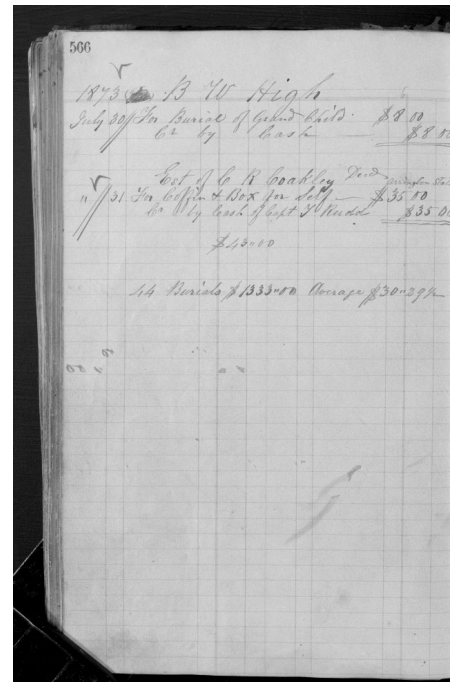 566
1873 B W High
July 30 For Burial of Grand Child $8 00
Cr by Cash $8 00
Est of C R Coakley Decd
" 31 For Coffin & Box for Self $35 00
Cr by Cash of Capt T Rudd $35 00
$43"00
44 Burials $1333"00 Average $30"29½